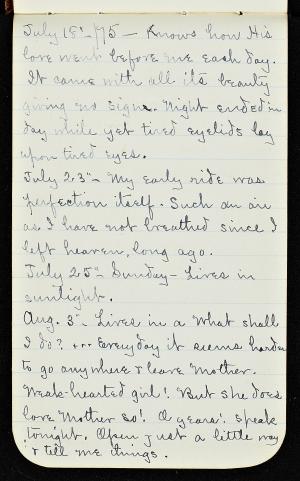 July 18"-/75 — Knows how His
love went before me each day.
It came with all its beauty
giving no sign. Night ended in
day while yet tired eyelids lay
upon tired eyes.
July 23"- My early ride was
perfection itself. Such an air
as I have not breathed since I
left heaven, long ago.
July 25"- Sunday - Lives in
sunlight.
Aug. 3"- Lives in a What shall
I do? +-- Everyday it seems harder
to go anywhere & leave Mother.
Weak-hearted girl! But she does
love Mother so! O years! speak
tonight. Open just a little way
& tell me things.